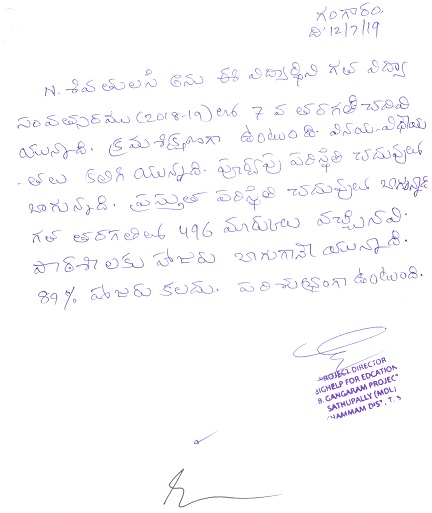 గంగారం
ది 12/7/19
N. శివ తులసి అను ఈ విద్యార్థిని గత విద్యా
సంవత్సరము (2018-19) లో 7 వ తరగతి చదివి
యున్నాది. క్రమశిక్షణగా ఉంటుంది. వినయ-విధేయ
-తలు కలిగి యున్నాది. పూర్వపు పరిస్థితి చదువులో
బాగున్నాది. ప్రస్తుత పరిస్థితి చదువులో బాగున్నాది
గత తరగతిలో 496 మార్కులు వచ్చినవి.
పాఠశాలకు హాజరు బాగుగానే యున్నాది.
89% హాజరు కలదు. పరిశుభ్రంగా ఉంటుంది.
PROJECT DIRECTOR
BIGHELP FOR EDCATION
B. GANGARAM PROJEC
SATHUPALLY (MDL)
HAMMAM DIS", T. S